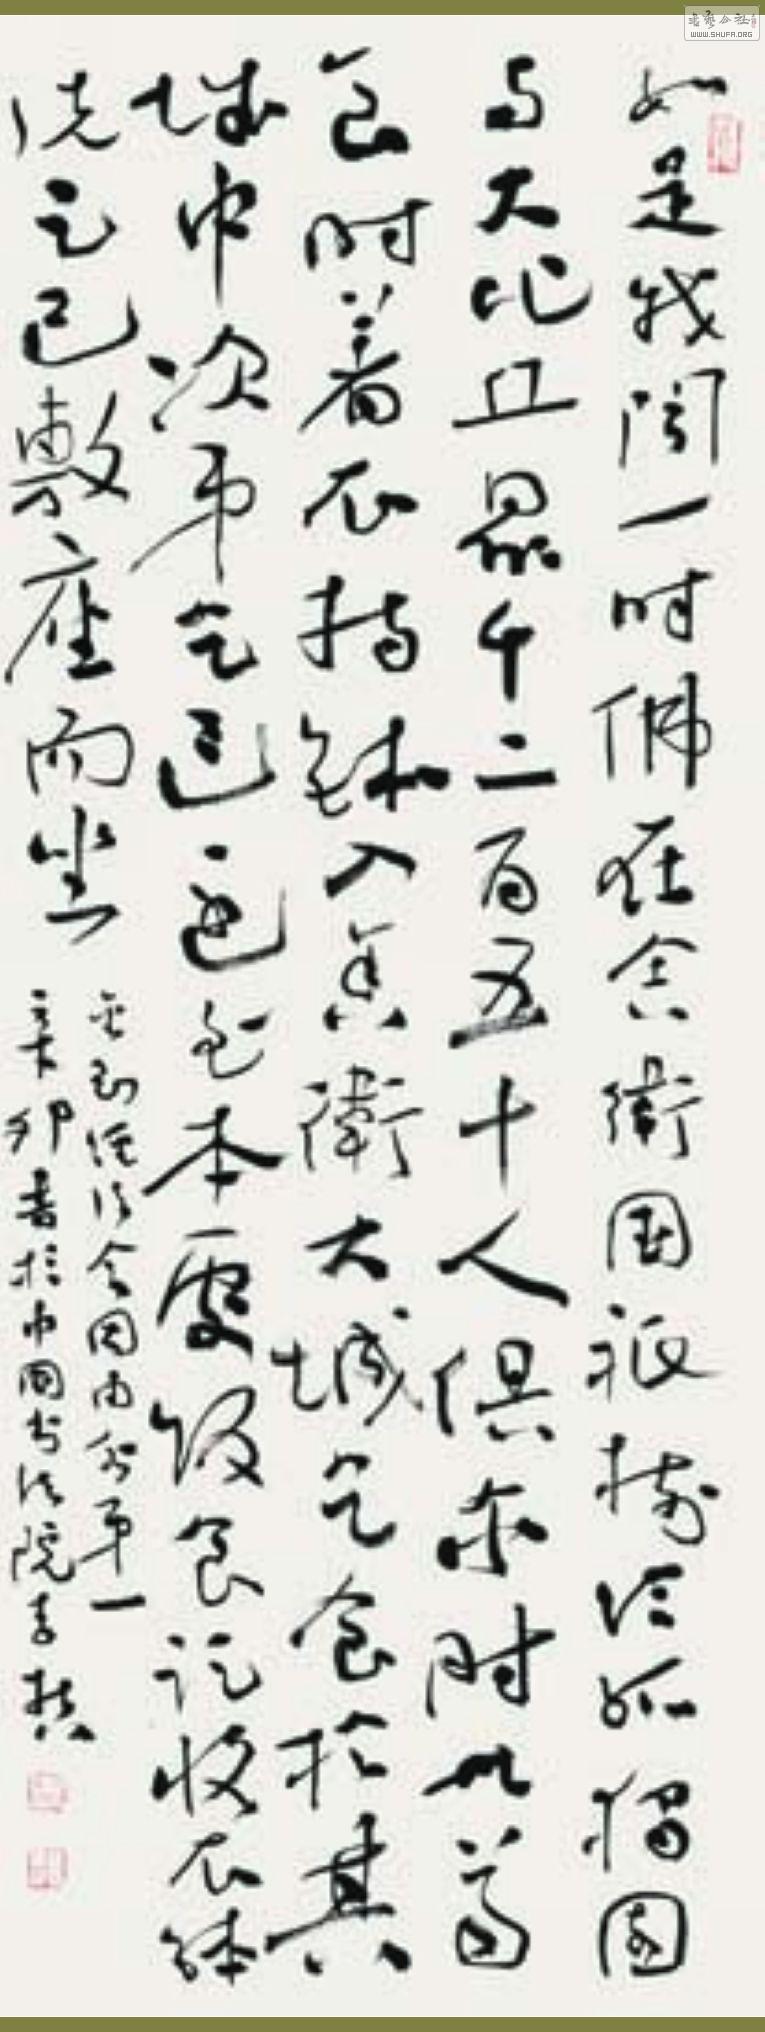 如是我聞一時佛在舍衛國祇樹給孤獨園
与大比丘眾千二百五十人俱尔時世尊
食時著衣持鉢入舍衛大城乞食於其
城中次第乞已還至本處飯食訖收衣鉢
洗足已敷座而坐
金剛經法會因由分第一
辛卯書於中國书法院李
书藝公社
WWW.SHUFA.ORG